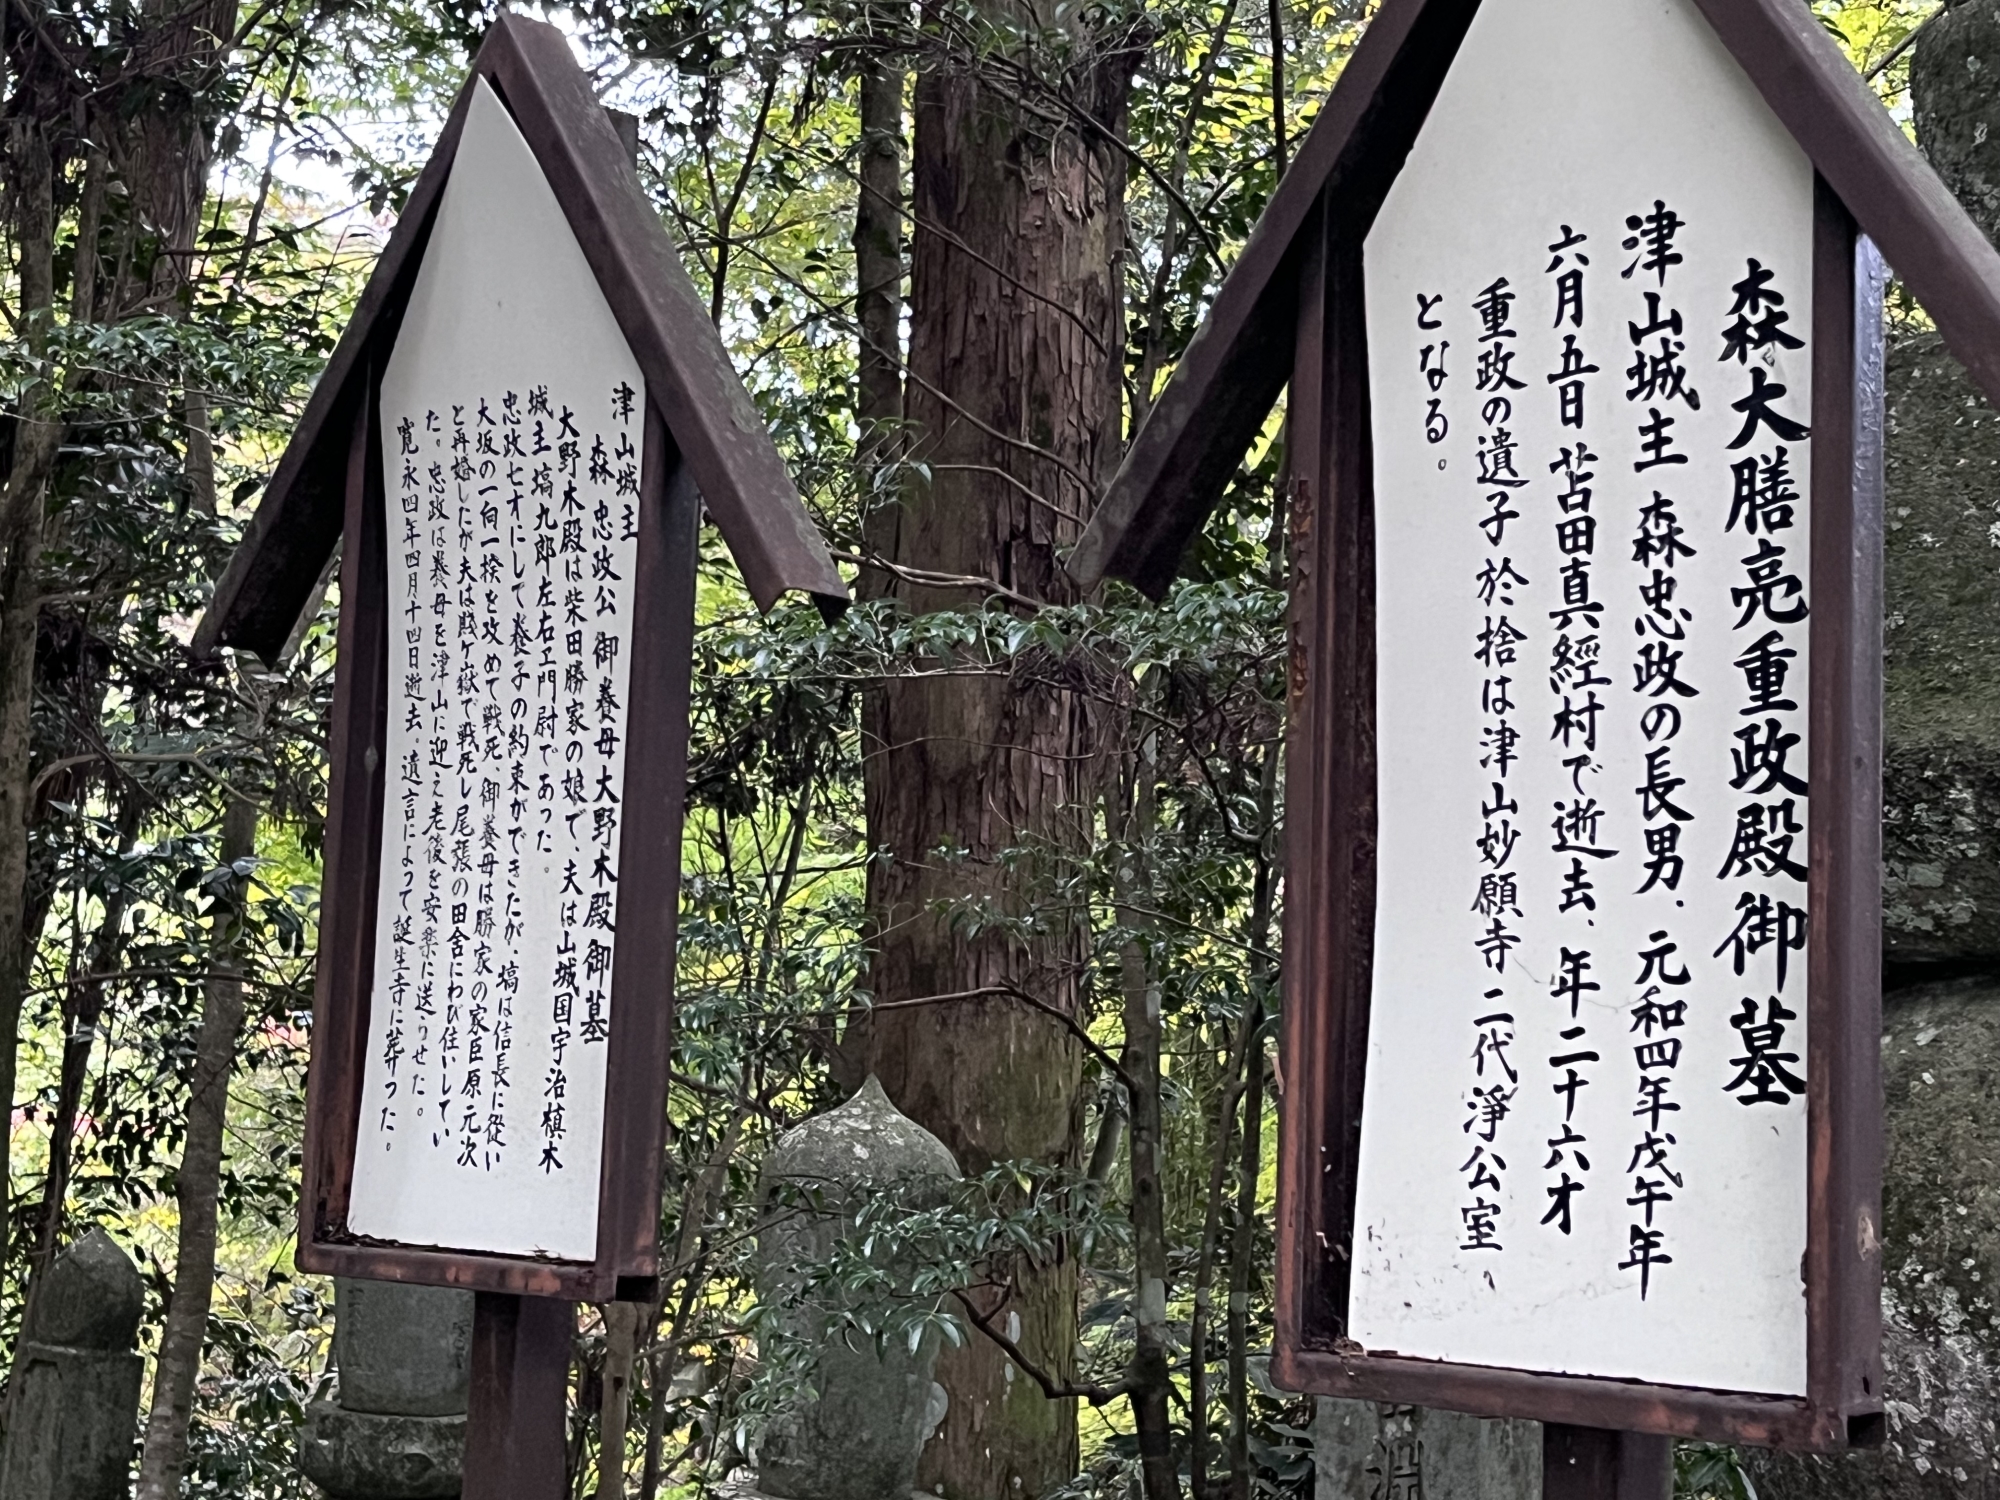 森大膳亮重政殿御墓
津山城主 森忠政の長男、元和四年戊午年
六月五日 苫田真經村で逝去、年二十六才
重政の遺子 於捨は津山妙願寺二代淨公室、
となる。
津山城主
森 忠政公 御養母大野木殿御墓
大野木殿は柴田勝家の娘で、夫は山城国宇治槙木
城主塙九郎左右ヱ門尉であった。
忠政七才にして養子の約束ができたが、塙は信長に従い
大坂の一向一揆を攻めて戦死、御養母は勝家の家臣原元次
と再婚したが夫は賤ケ嶽で戦死し尾張の田舎にわび住いしてい
た。忠政は養母を津山に迎え老後を安楽に送らせた。
寛永四年四月十四日逝去 遺言によって誕生寺に葬った。